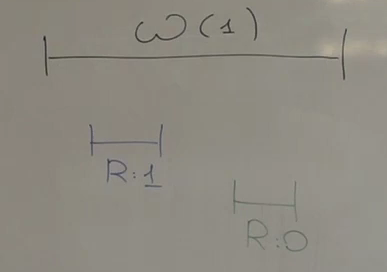 W(1)
R:1
R:0